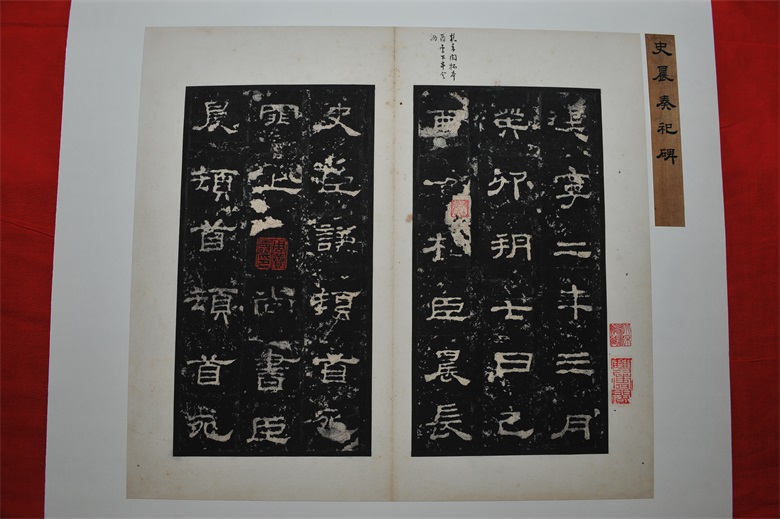 史晨奏祀碑
建寧二年三月
癸卯朔七日己
酉相臣晨長
史臣謙頓首死
罪上尚書臣
晨頓首頓首死